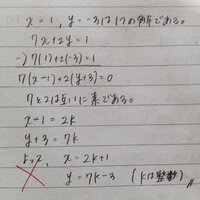 x=1, y=-3は1つの解である。
7x+2y=1
-) 7(1)+2(-3)=1
7(x-1)+2(y+3)=0
7と2は互いに素である。
x-1=2k
y+3=7k
よって、x=2k+1
y=7k-3 (kは整数)